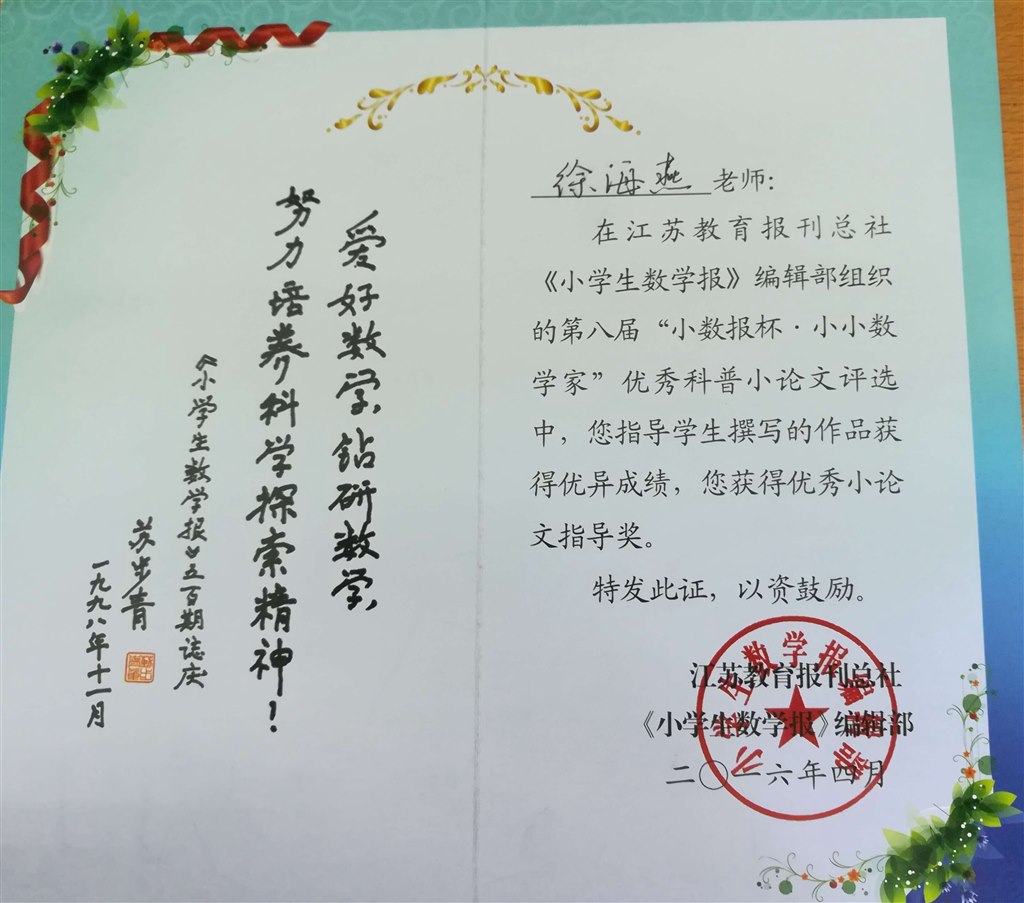 爱好数学,钻研数学,
努力培养科学探索精神!
《小学生数学报》五百期志庆
苏步青
一九九八年十一月
徐海燕老师:
在江苏教育报刊总社
《小学生数学报》编辑部组织
的第八届“小数报杯·小小数
学家”优秀科普小论文评选
中,您指导学生撰写的作品获
得优异成绩,您获得优秀小论
文指导奖。
特发此证,以资鼓励。
江苏教育报刊总社
《小学生数学报》编辑部
二〇一六年四月
小学生数学报编辑部